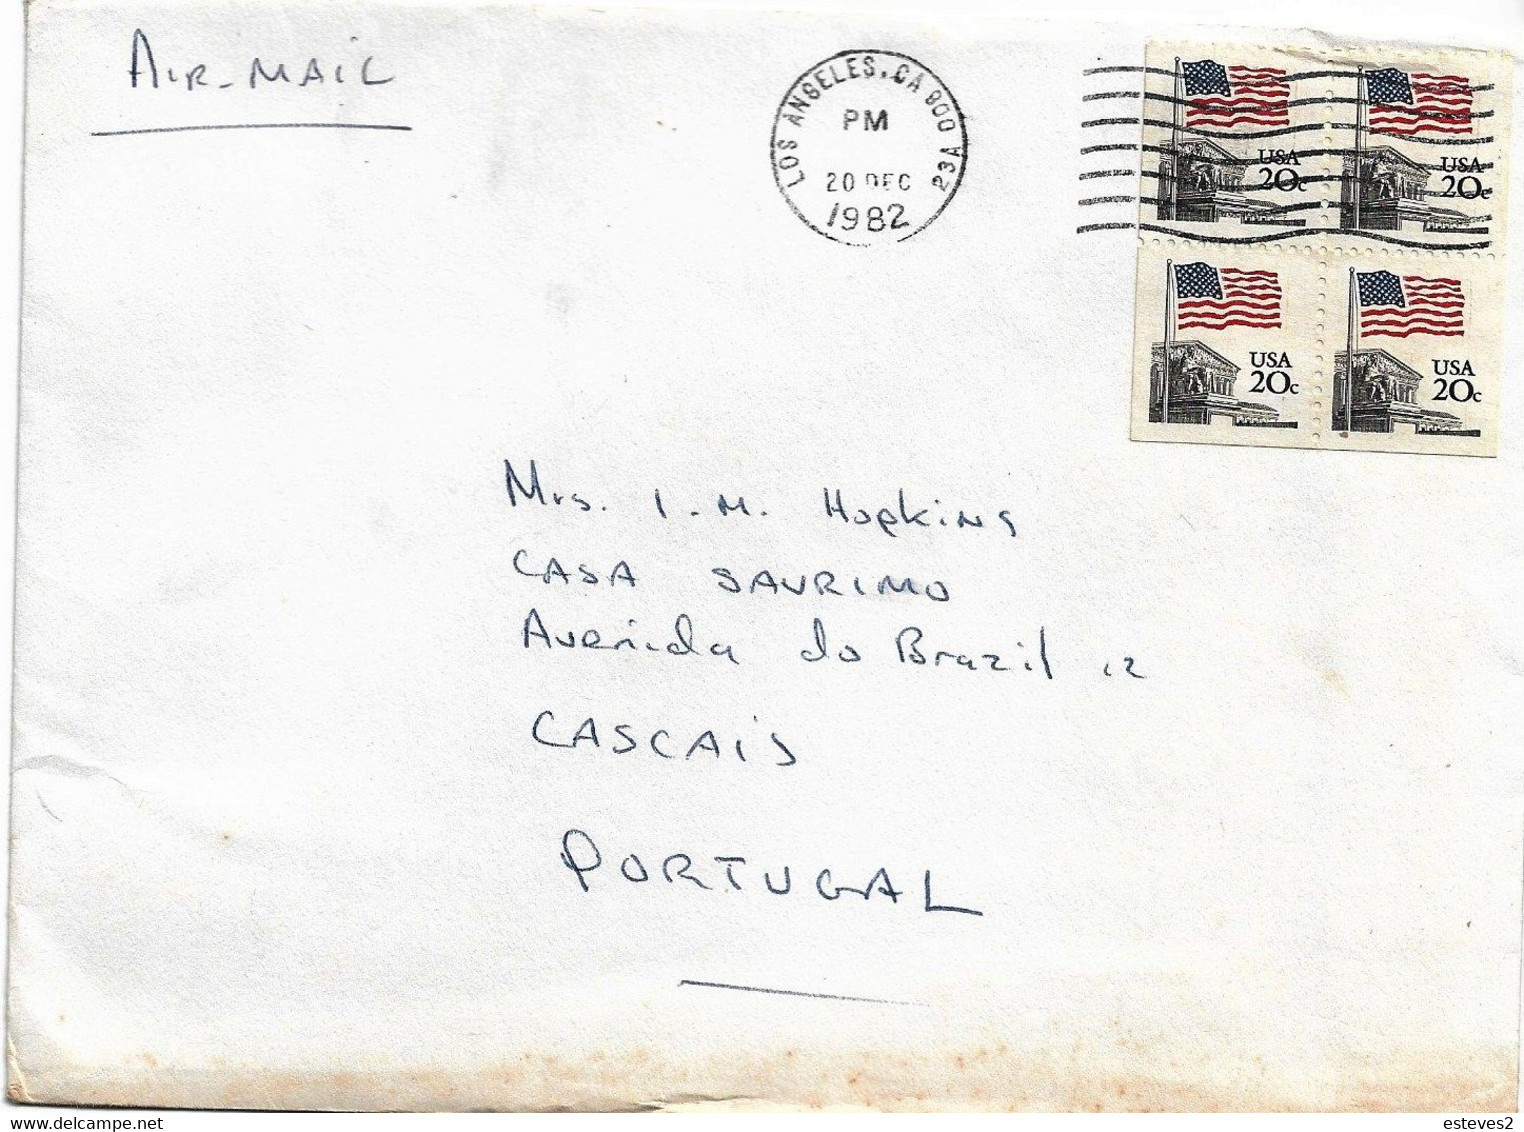 AIR-MAIL
LOS ANGELES, CA 900 23A
PM
20 DEC
1982
USA
20c
USA
20c
USA
20c
USA
20c
Mrs. I. M. Hopkins
CASA SAURIMO
Avenida do Brazil 12
CASCAIS
PORTUGAL
delcampe.net
esteves2